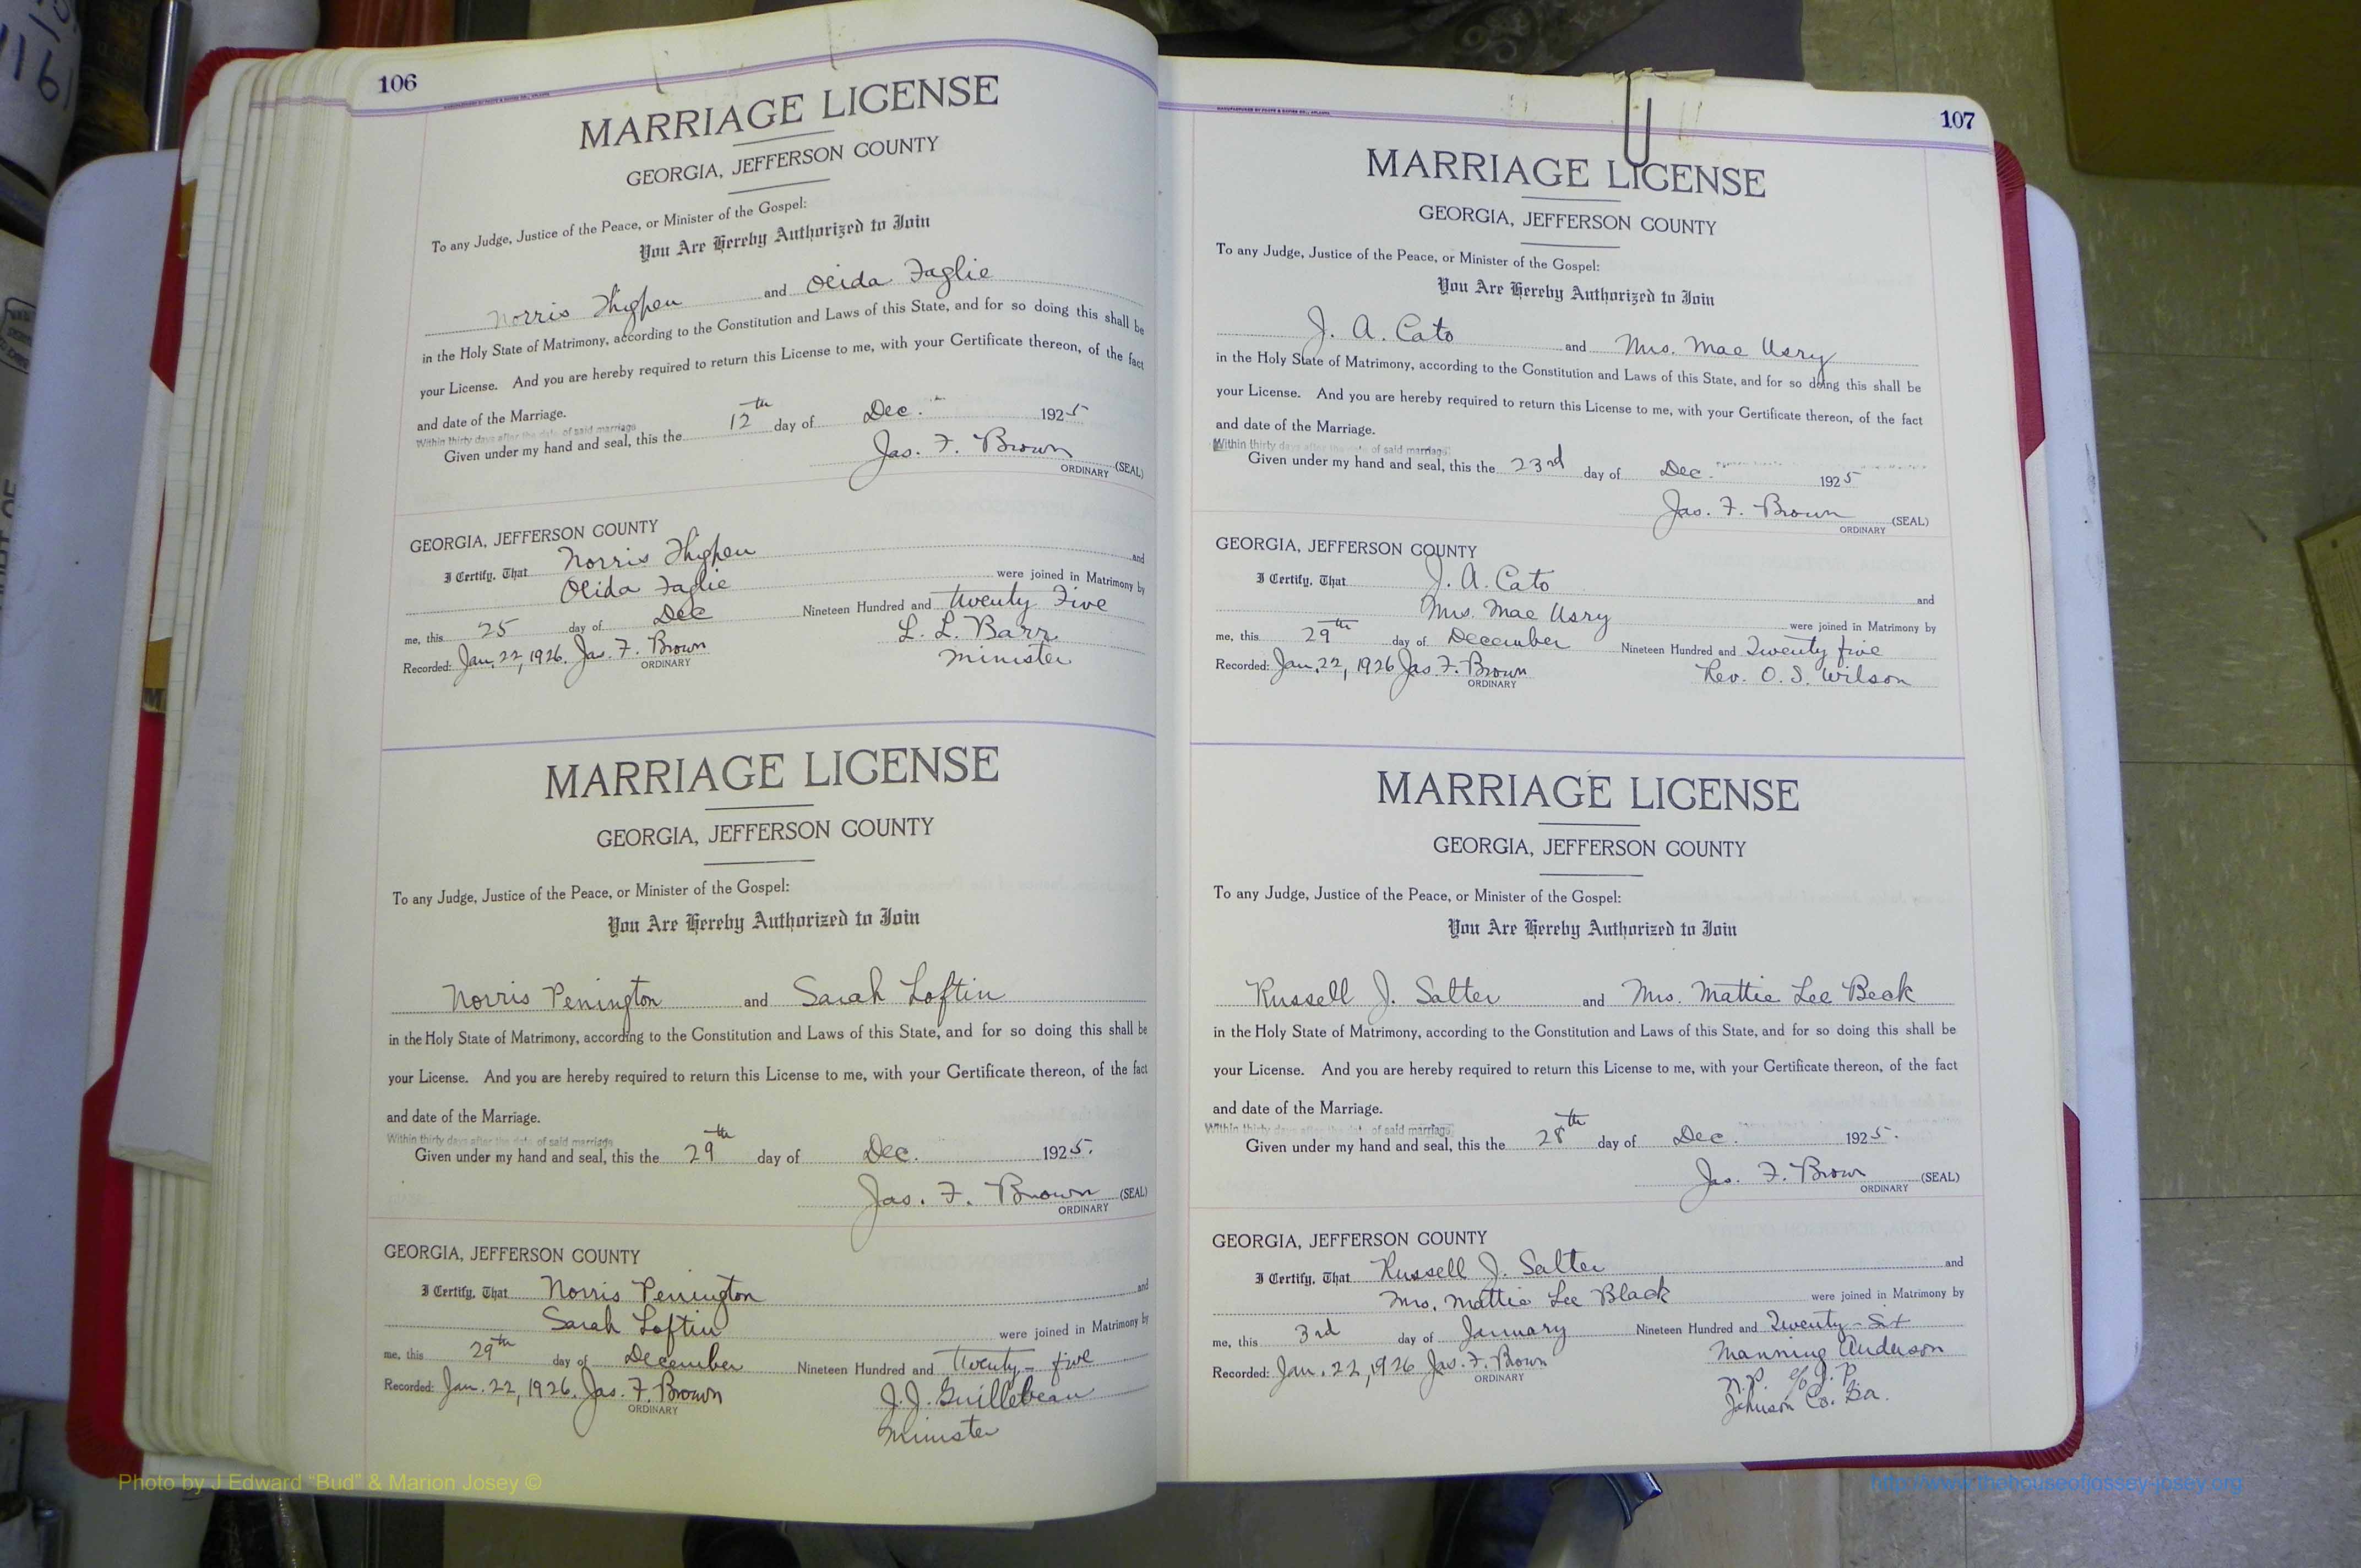 106
MARRIAGE LICENSE
GEORGIA, JEFFERSON COUNTY
To any Judge, Justice of the Peace, or Minister of the Gospel:
You Are Hereby Authorized to Join
Norris Thigpen and Olida Faglie
in the Holy State of Matrimony, according to the Constitution and Laws of this State, and for so doing this shall be
your License. And you are hereby required to return this License to me, with your Certificate thereon, of the fact
and date of the Marriage.
Within thirty days after the date of said marriage
Given under my hand and seal, this the 12th day of Dec. 1925
Jas. F. Brown (SEAL)
ORDINARY
GEORGIA, JEFFERSON COUNTY
I Certify, That Norris Thigpen and
Olida Faglie were joined in Matrimony by
me, this 25 day of Dec Nineteen Hundred and Twenty Five
L. L. Barr
Recorded: Jan, 22, 1926. Jas. F. Brown Minister
ORDINARY
MARRIAGE LICENSE
GEORGIA, JEFFERSON COUNTY
To any Judge, Justice of the Peace, or Minister of the Gospel:
You Are Hereby Authorized to Join
Norris Penington and Sarah Loftin
in the Holy State of Matrimony, according to the Constitution and Laws of this State, and for so doing this shall be
your License. And you are hereby required to return this License to me, with your Certificate thereon, of the fact
and date of the Marriage.
Within thirty days after the date of said marriage
Given under my hand and seal, this the 29th day of Dec. 1925.
Jas. F. Brown (SEAL)
ORDINARY
GEORGIA, JEFFERSON COUNTY
I Certify, That Norris Penington and
Sarah Loftin were joined in Matrimony by
me, this 29th day of December Nineteen Hundred and Twenty-five
Recorded: Jan. 22, 1926. Jas. F. Brown J. J. Guillebeau
ORDINARY
Minister
107
MARRIAGE LICENSE
GEORGIA, JEFFERSON COUNTY
To any Judge, Justice of the Peace, or Minister of the Gospel:
You Are Hereby Authorized to Join
J. A. Cato and Mrs. Mae Usry
in the Holy State of Matrimony, according to the Constitution and Laws of this State, and for so doing this shall be
your License. And you are hereby required to return this License to me, with your Certificate thereon, of the fact
and date of the Marriage.
Within thirty days after the date of said marriage
Given under my hand and seal, this the 23rd day of Dec. 1925
Jas. F. Brown (SEAL)
ORDINARY
GEORGIA, JEFFERSON COUNTY
I Certify, That J. A. Cato and
Mrs. Mae Usry were joined in Matrimony by
me, this 29th day of December Nineteen Hundred and Twenty five
Recorded: Jan. 22, 1926 Jas. F. Brown Rev. O. S. Wilson
ORDINARY
MARRIAGE LICENSE
GEORGIA, JEFFERSON COUNTY
To any Judge, Justice of the Peace, or Minister of the Gospel:
You Are Hereby Authorized to Join
Russell J. Salter and Mrs. Mattie Lee Beck
in the Holy State of Matrimony, according to the Constitution and Laws of this State, and for so doing this shall be
your License. And you are hereby required to return this License to me, with your Certificate thereon, of the fact
and date of the Marriage.
Within thirty days after the date of said marriage
Given under my hand and seal, this the 28th day of Dec. 1925.
Jas. F. Brown (SEAL)
ORDINARY
GEORGIA, JEFFERSON COUNTY
I Certify, That Russell J. Salter and
Mrs. Mattie Lee Black were joined in Matrimony by
me, this 3rd day of January Nineteen Hundred and Twenty-Six
Manning Anderson
Recorded: Jan. 22, 1926 Jas. F. Brown
ORDINARY
Johnson Co. Ga.
Photo by J Edward “Bud” & Marion Josey ©
http://www.thehouseofjossey-josey.org